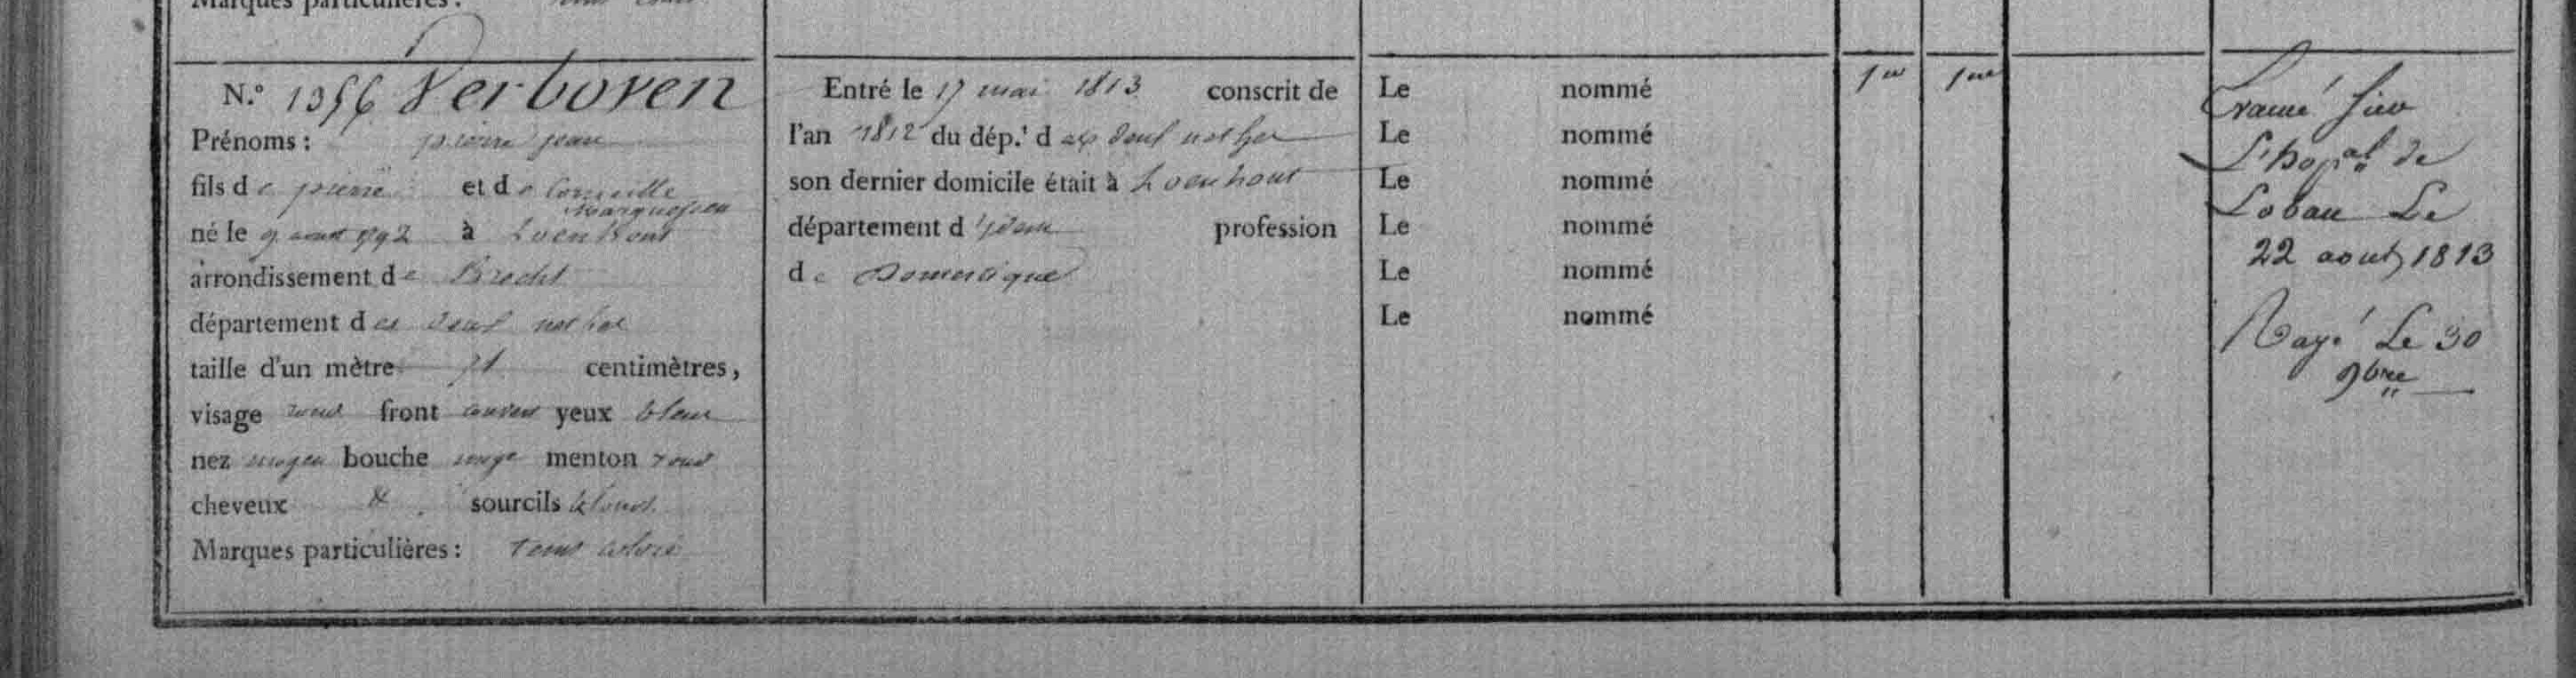 Marques particulières :
N.° 1356 Verboven
Prénoms : pierre jean
fils de pierre et de Corneille
Marquessen
né le 9 aout 1792 à Loenhout
arrondissement de Brecht
département des deux nethes
taille d'un mètre 71 centimètres,
visage rond front couvert yeux bleux
nez moyen bouche moye menton rond
cheveux & sourcils blonds.
Marques particulières : teint coloré
Entré le 17 mai 1813 conscrit de
l'an 1812 du dép.t des deux nethes
son dernier domicile était à Loenhout
département d'idem profession
de Domestique
Le nommé
Le nommé
Le nommé
Le nommé
Le nommé
Le nommé
1er 1er
L'hopal de
Lobau Le
22 aout 1813
Rayé Le 30
9bre